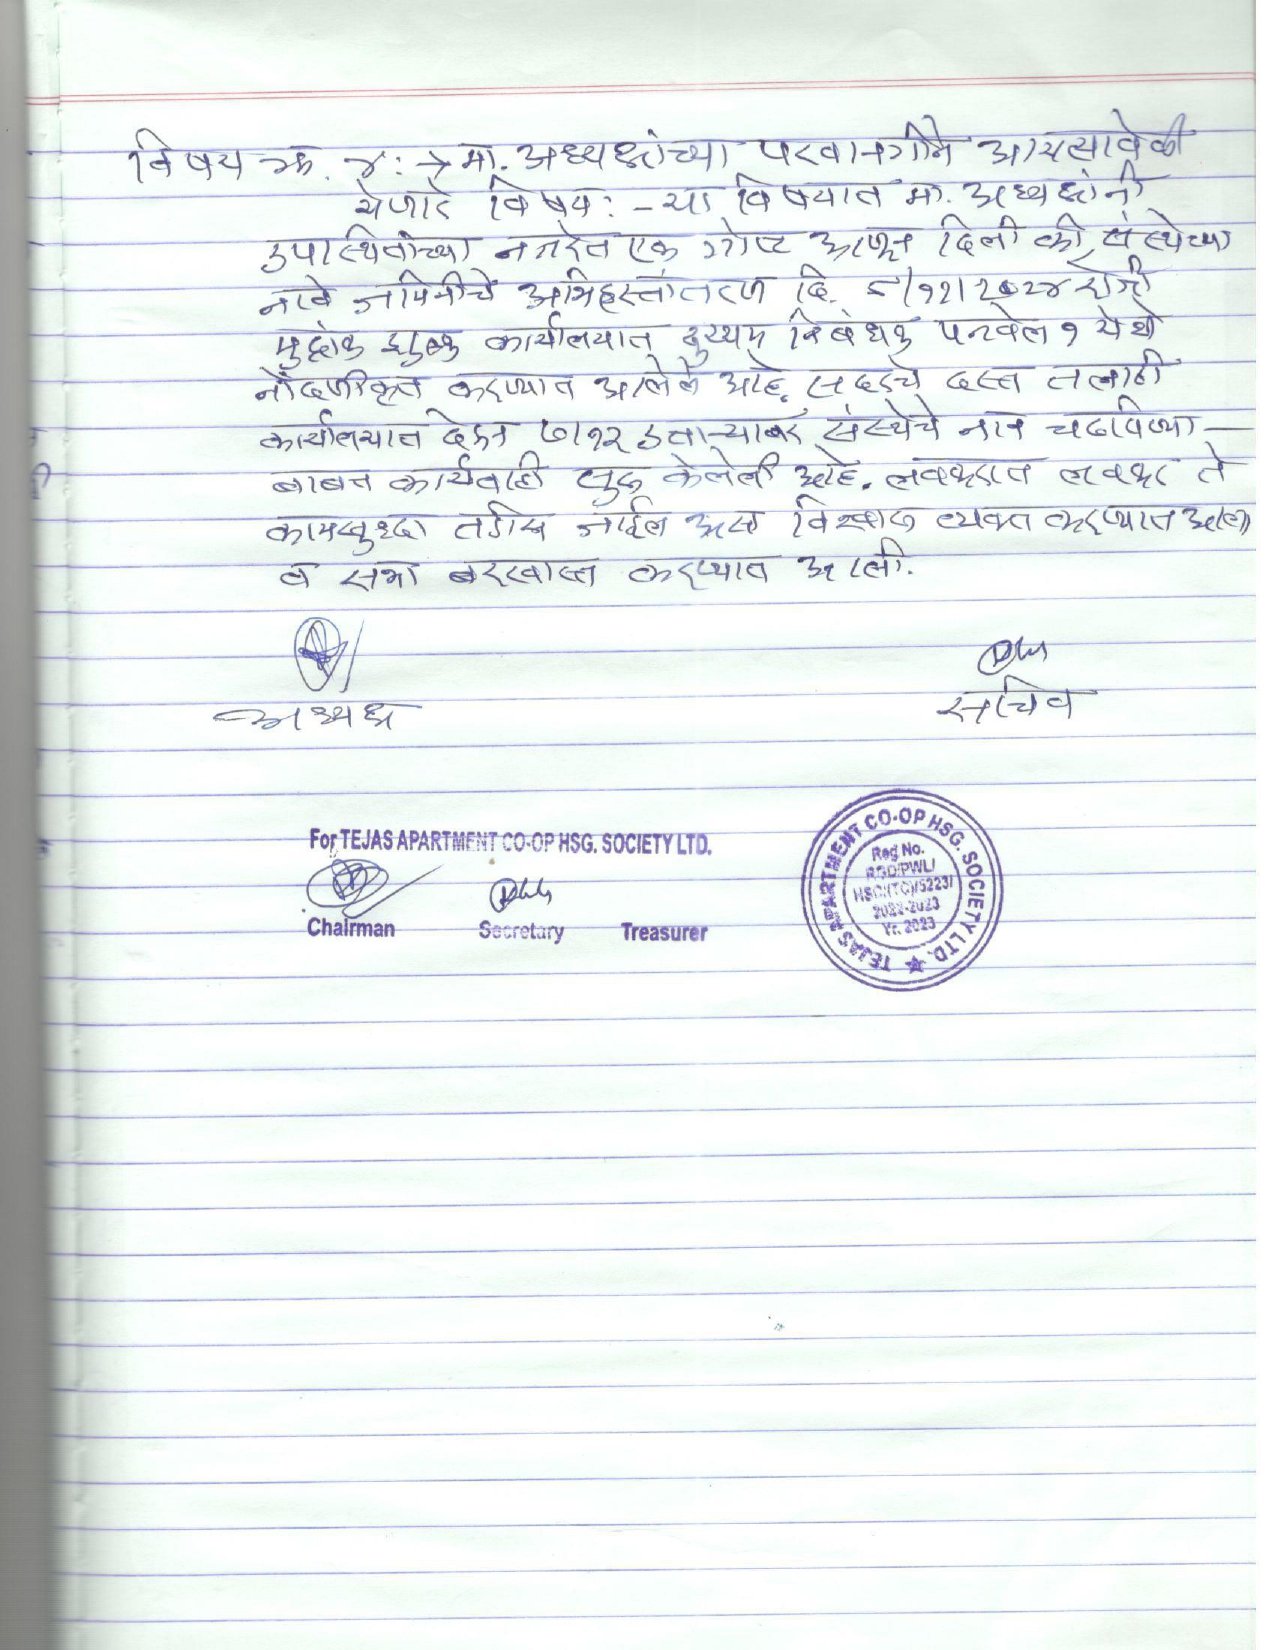 विषय क्र. ४ : → मा. अध्यक्षांच्या परवानगीने आयत्यावेळी
येणारे विषय : - या विषयात मा. अध्यक्षांनी
उपास्थितांच्या नजरेत एक गोष्ट आणून दिली की, संस्थेच्या
नावे जमिनीचे अभिहस्तांतरण दि. ८/१२/२०२४ रोजी
मुद्रांक शुल्क कार्यालयात दुय्यम निबंधक पनवेल १ येथे
नोंदणीकृत करण्यात आलेले आहे. सदरचे दस्त तलाठी
कार्यालयात देऊन ७/१२ उताऱ्यावर संस्थेचे नाव चढविण्या-
बाबत कार्यवाही सुरू केलेली आहे. लवकरात लवकर ते
कामसुध्दा तडीस जाईल असा विश्वास व्यक्त करण्यात आला
व सभा बरखास्त करण्यात आली.
अध्यक्ष
सचिव
For TEJAS APARTMENT CO-OP HSG. SOCIETY LTD.
Chairman Secretary Treasurer
TEJAS APARTMENT CO-OP HSG. SOCIETY LTD.
Reg No.
RGD/PWL/
HSG/(TC)/5223/
2022-2023
Yr. 2023